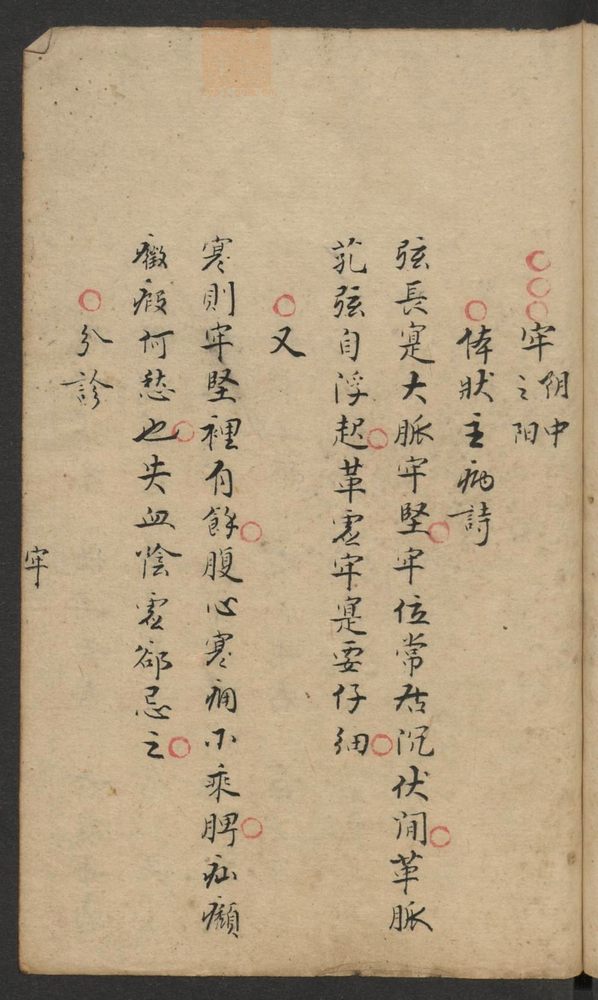 ○○○牢阴中之阳
○体狀主病詩
弦長寔大脈牢堅○牢位常居沉伏间○革脈
芤弦自浮起○革虛牢寔要仔細○
○又
寒則牢堅裡有餘○腹心寒痛木乘脾○疝㿗
癥瘕何愁也○失血陰虛郤忌之○
○分診
牢